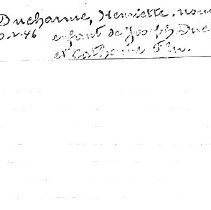 Ducharme, Henriette, nou
enfant de Joseph Duc
et Catherine